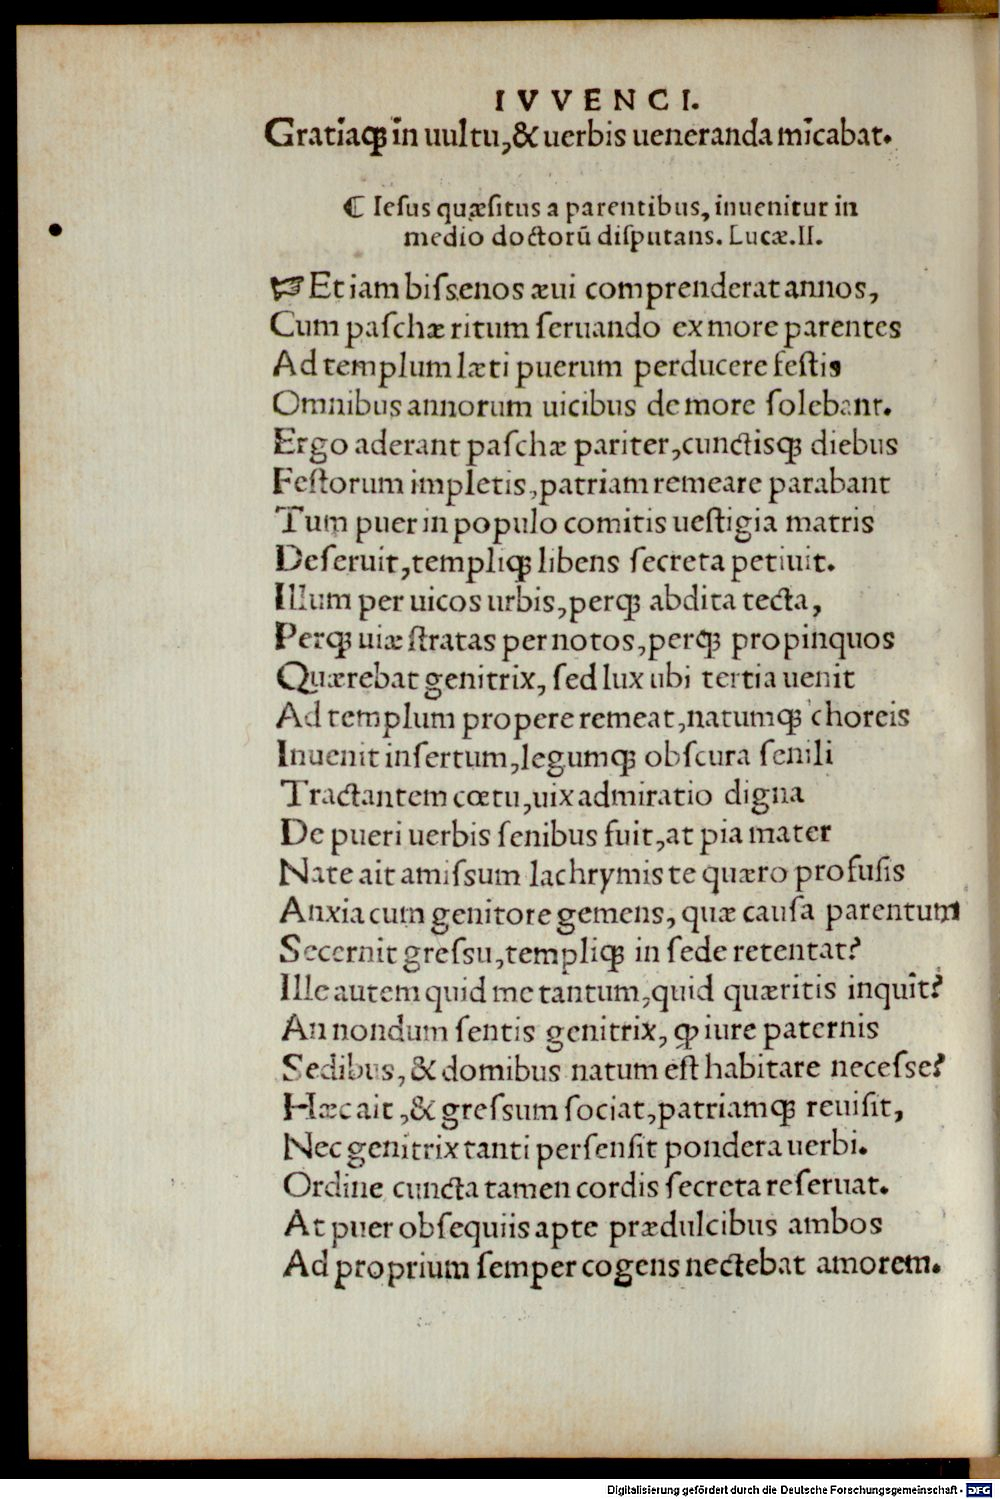 IVVENCI.
Gratiaqꝫ in uultu, & uerbis ueneranda micabat.
☾ Iesus quæsitus a parentibus, inuenitur in
medio doctorū disputans. Lucæ.II.
☞ Et iam bissenos æui comprenderat annos,
Cum paschæ ritum seruando ex more parentes
Ad templum læti puerum perducere festis
Omnibus annorum uicibus de more solebant.
Ergo aderant paschæ pariter, cunctisqꝫ diebus
Festorum impletis, patriam remeare parabant
Tum puer in populo comitis uestigia matris
Deseruit, templiqꝫ libens secreta petiuit.
Illum per uicos urbis, perqꝫ abdita tecta,
Perqꝫ uiæ stratas per notos, perqꝫ propinquos
Quærebat genitrix, sed lux ubi tertia uenit
Ad templum propere remeat, natumqꝫ choreis
Inuenit insertum, legumqꝫ obscura senili
Tractantem cœtu, uix admiratio digna
De pueri uerbis senibus fuit, at pia mater
Nate ait amissum lachrymis te quæro profusis
Anxia cum genitore gemens, quæ causa parentum
Secernit gressu, templiqꝫ in sede retentat?
Ille autem quid me tantum, quid quæritis inquit?
An nondum sentis genitrix, ꝙ iure paternis
Sedibus, & domibus natum est habitare necesse?
Hæc ait, & gressum sociat, patriamqꝫ reuisit,
Nec genitrix tanti persensit pondera uerbi.
Ordine cuncta tamen cordis secreta reseruat.
At puer obsequiis apte prædulcibus ambos
Ad proprium semper cogens nectebat amorem.
Digitalisierung gefördert durch die Deutsche Forschungsgemeinschaft - DFG